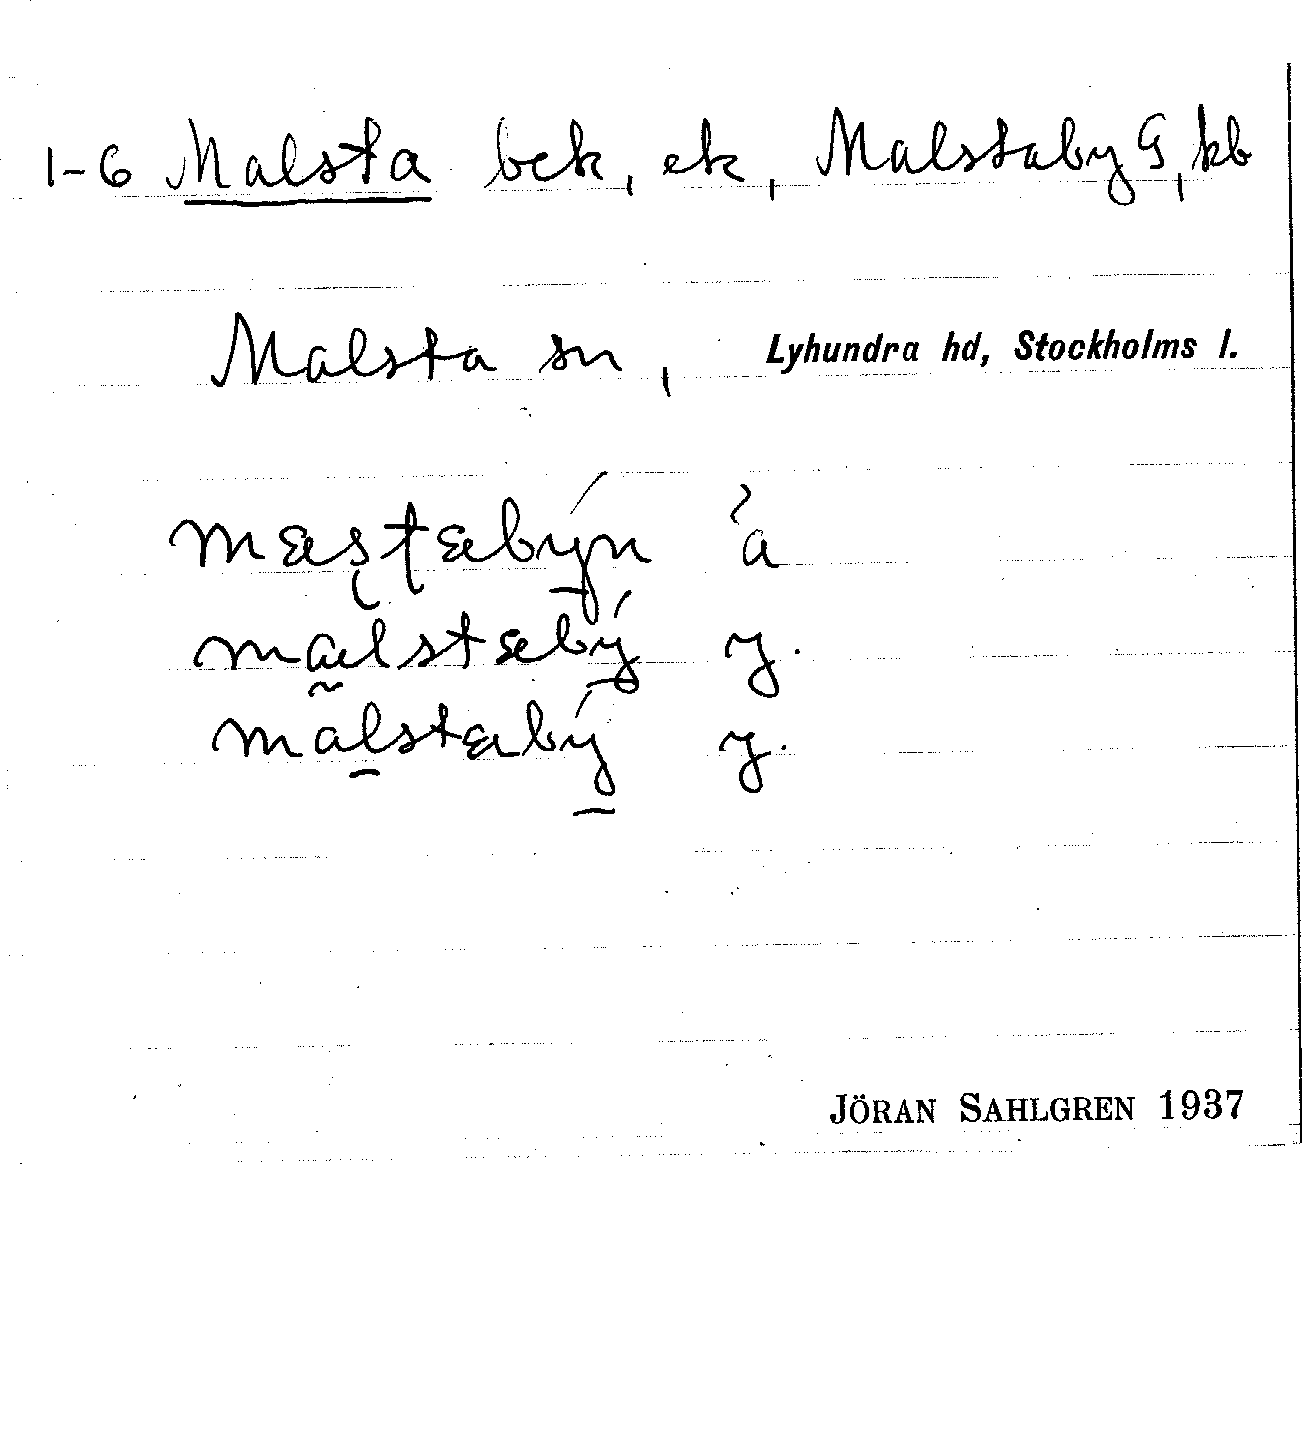 1-6 Malsta bek, ek, Malstaby G, kb
Malsta sn, Lyhundra hd, Stockholms l.
mæstæbýn å
mælstæbý y.
malstæbý y.
JÖRAN SAHLGREN 1937